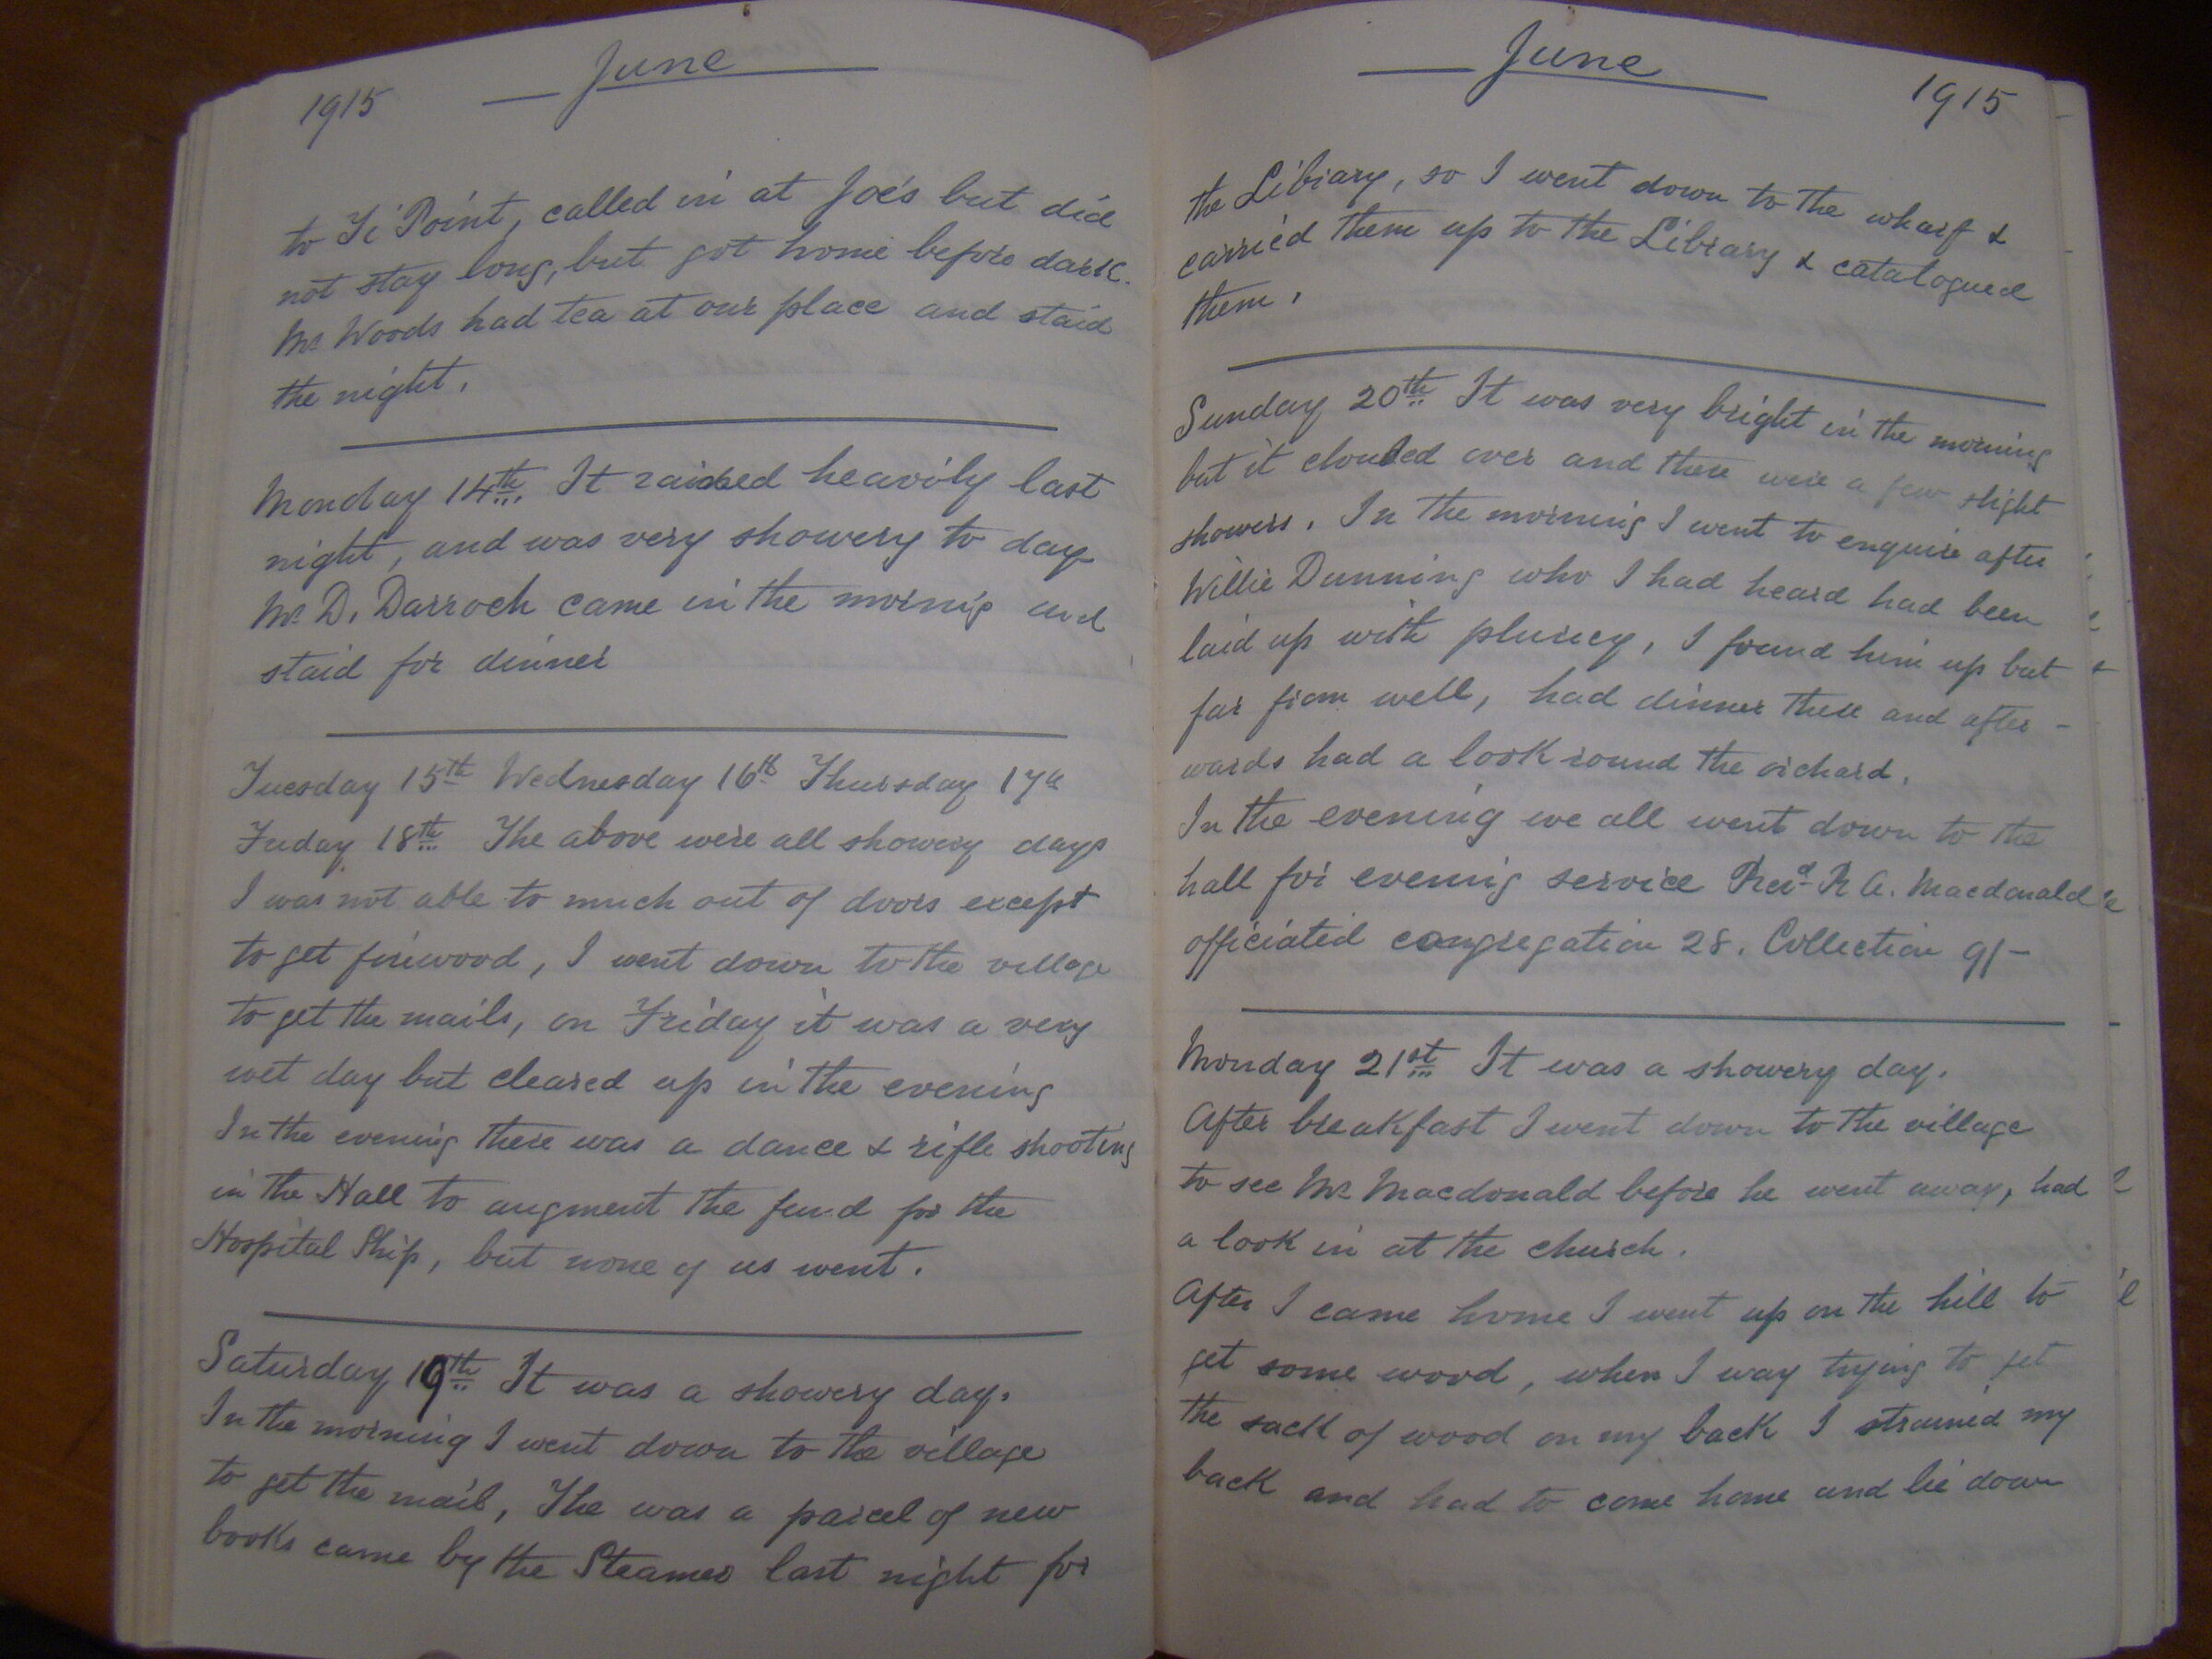 June
1915
to Ti Point, called in at Joe's but did
not stay long, but got home before dark.
Mr Woods had tea at our place and staid
the night.
Monday 14th It rained heavily last
night, and was very showery to day
Mr D. Darroch came in the morning and
staid for dinner
Tuesday 15th Wednesday 16th Thursday 17th
Friday 18th The above were all showery days
I was not able to much out of doors except
to get firewood, I went down to the village
to get the mails, on Friday it was a very
wet day but cleared up in the evening
In the evening there was a dance & rifle shooting
in the Hall to augment the fund for the
Hospital Ship, but none of us went.
Saturday 19th It was a showery day.
In the morning I went down to the village
to get the mail, The was a parcel of new
books came by the Steamer last night for
June
1915
the Library, so I went down to the wharf &
carried them up to the Library & catalogued
them.
Sunday 20th It was very bright in the morning
but it clouded over and there were a few slight
showers. In the morning I went to enquire after
Willie Dunning who I had heard had been
laid up with pluricy, I found him up but
far from well, had dinner there and after-
wards had a look round the orchard.
In the evening we all went down to the
hall for evening service Revd R A. Macdonald
officiated congregation 28. Collection 9/-
Monday 21st It was a showery day.
After breakfast I went down to the village
to see Mr Macdonald before he went away, had
a look in at the church.
After I came home I went up on the hill to
get some wood, when I way trying to get
the sack of wood on my back I strained my
back and had to come home and lie down